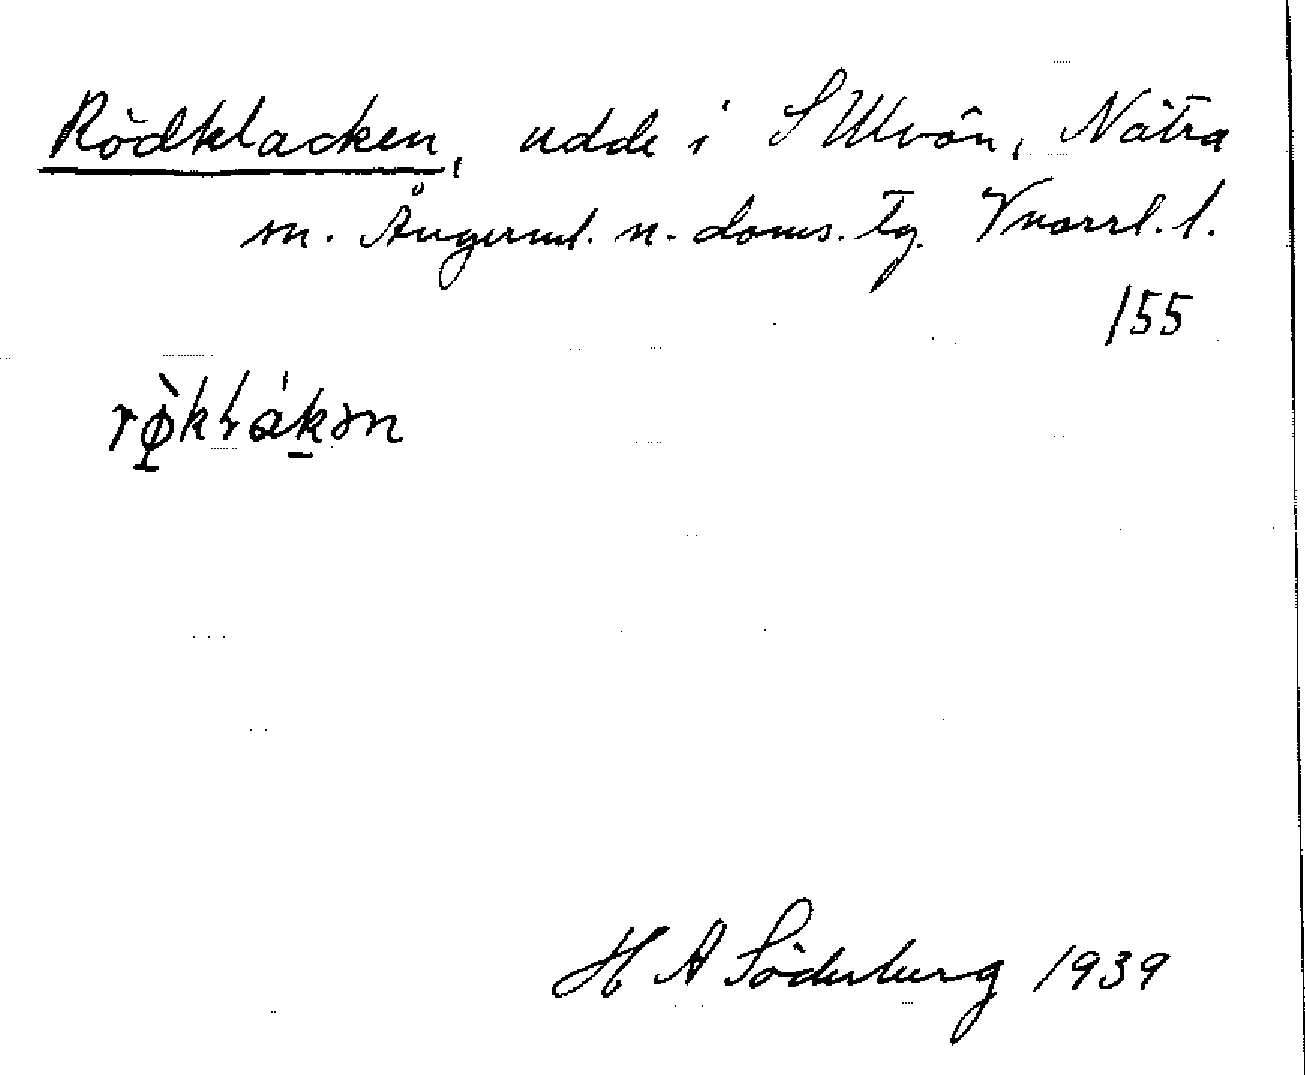 Rödklacken, udde i S Ulvön, Nätra
sn. Ångerml. n. doms. tg. Vnorrl. l.
155
rø̀klákən
H A Söderberg 1939